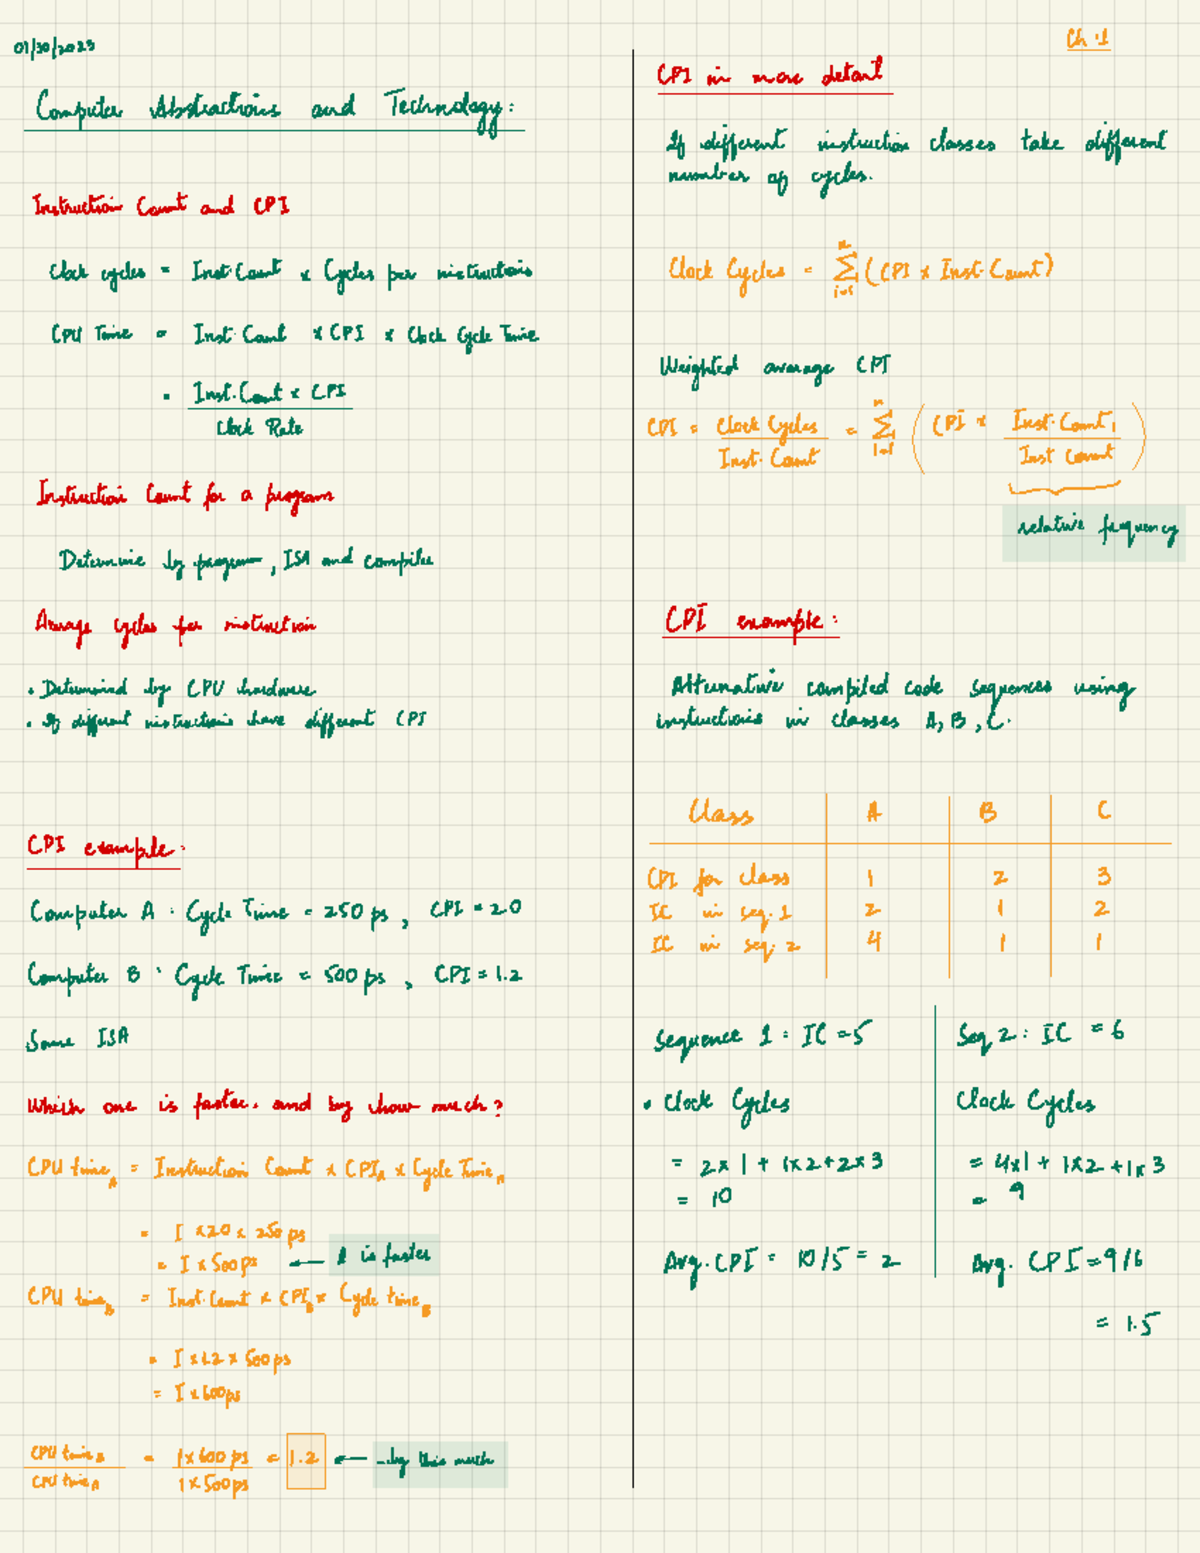 01/30/2023
Computer Abstractions and Technology:
Instruction Count and CPI
Clock cycles = Inst. Count x Cycles per instructions
CPU Time = Inst. Count x CPI x Clock Cycle Time
= Inst. Count x CPI
Clock Rate
Instruction Count for a program
Determine by program, ISA and compiler
Average cycles per instruction
• Determined by CPU hardware
• If different instructions have different CPI
CPI example:
Computer A : Cycle Time = 250 ps, CPI = 2.0
Computer B : Cycle Time = 500 ps, CPI = 1.2
Same ISA
Which one is faster, and by how much?
CPU time A = Instruction Count x CPI A x Cycle Time A
= I x 2.0 x 250 ps
= I x 500 ps ← A is faster
CPU time B = Inst. Count x CPI B x Cycle time B
= I x 1.2 x 500 ps
= I x 600 ps
CPU time B = 1 x 600 ps = 1.2 ← ..by this much
CPU time A 1 x 500 ps
Ch.1
CPI in more detail
If different instruction classes take different
number of cycles.
Clock Cycles = n ∑ i=1 (CPI x Inst. Count)
Weighted average CPI
CPI = Clock Cycles = n ∑ i=1 ( CPI x Inst. Count i )
Inst. Count Inst Count
relative frequency
CPI example:
Alternative compiled code sequences using
instructions in classes A, B, C.
Class A B C
CPI for class 1 2 3
IC in seq. 1 2 1 2
IC in seq. 2 4 1 1
Sequence 1 : IC = 5
• Clock Cycles
= 2x1 + 1x2 + 2x3
= 10
Avg. CPI = 10/5 = 2
Seq 2 : IC = 6
Clock Cycles
= 4x1 + 1x2 + 1x3
= 9
Avg. CPI = 9/6
= 1.5